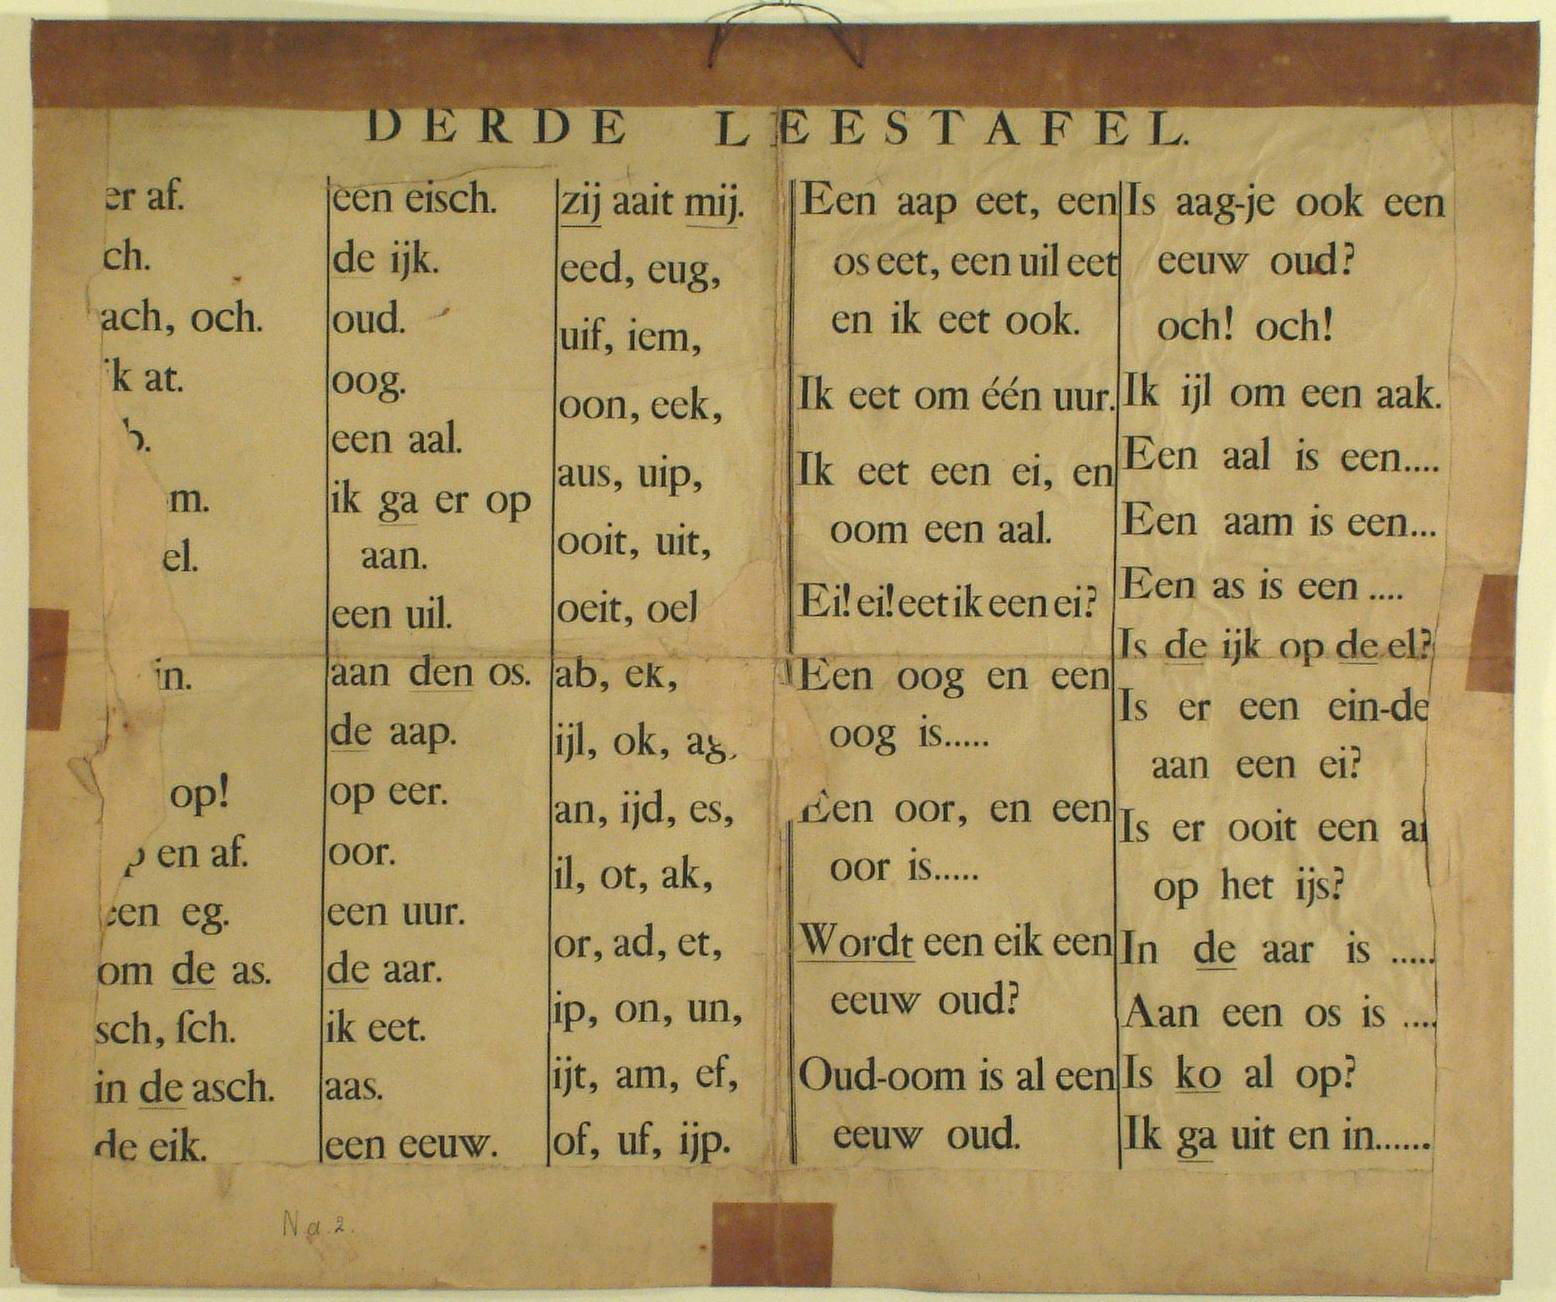 DERDE LEESTAFEL.
er af.
ch.
ach, och.
k at.
m.
el.
in.
op!
en af.
een eg.
om de as.
sch, ſch.
in de asch.
de eik.
een eisch.
de ijk.
oud.
oog.
een aal.
ik ga er op
aan.
een uil.
aan den os.
de aap.
op eer.
oor.
een uur.
de aar.
ik eet.
aas.
een eeuw.
zij aait mij.
eed, eug,
uif, iem,
oon, eek,
aus, uip,
ooit, uit,
oeit, oel
ab, ek,
ijl, ok, ag,
an, ijd, es,
il, ot, ak,
or, ad, et,
ip, on, un,
ijt, am, ef,
of, uf, ijp.
Een aap eet, een
os eet, een uil eet
en ik eet ook.
Ik eet om één uur.
Ik eet een ei, en
oom een aal.
Ei! ei! eet ik een ei?
Een oog en een
oog is.....
Een oor, en een
oor is.....
Wordt een eik een
eeuw oud?
Oud-oom is al een
eeuw oud.
Is aag-je ook een
eeuw oud?
och! och!
Ik ijl om een aak.
Een aal is een....
Een aam is een...
Een as is een ....
Is de ijk op de el?
Is er een ein-de
aan een ei?
Is er ooit een
op het ijs?
In de aar is .....
Aan een os is ....
Is ko al op?
Ik ga uit en in......
Na. 2.